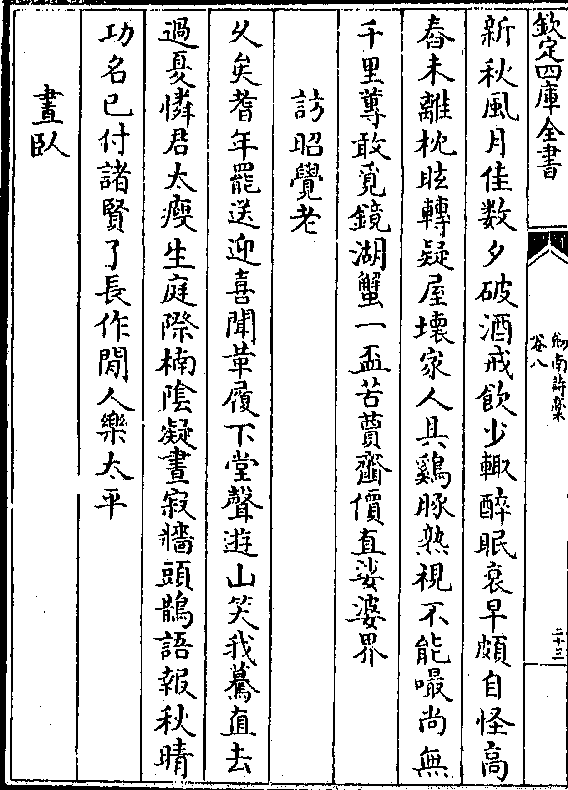 欽定四庫全書
劍南詩槀
卷八
二十三
新秋風月佳数夕破酒戒飲少輒醉眠衰早頗自怪高
舂未離枕眩轉疑屋壊家人具鷄豚熟視不能嘬尚無
千里蓴敢覓鏡湖蟹一盃苦蕒虀價直娑婆界
訪昭覺老
乆矣耆年罷送迎喜聞革履下堂聲遊山笑我驀直去
過夏憐君太瘦生庭際楠陰凝晝寂牆頭鵲語報秋晴
功名已付諸賢了長作閒人樂太平
晝臥